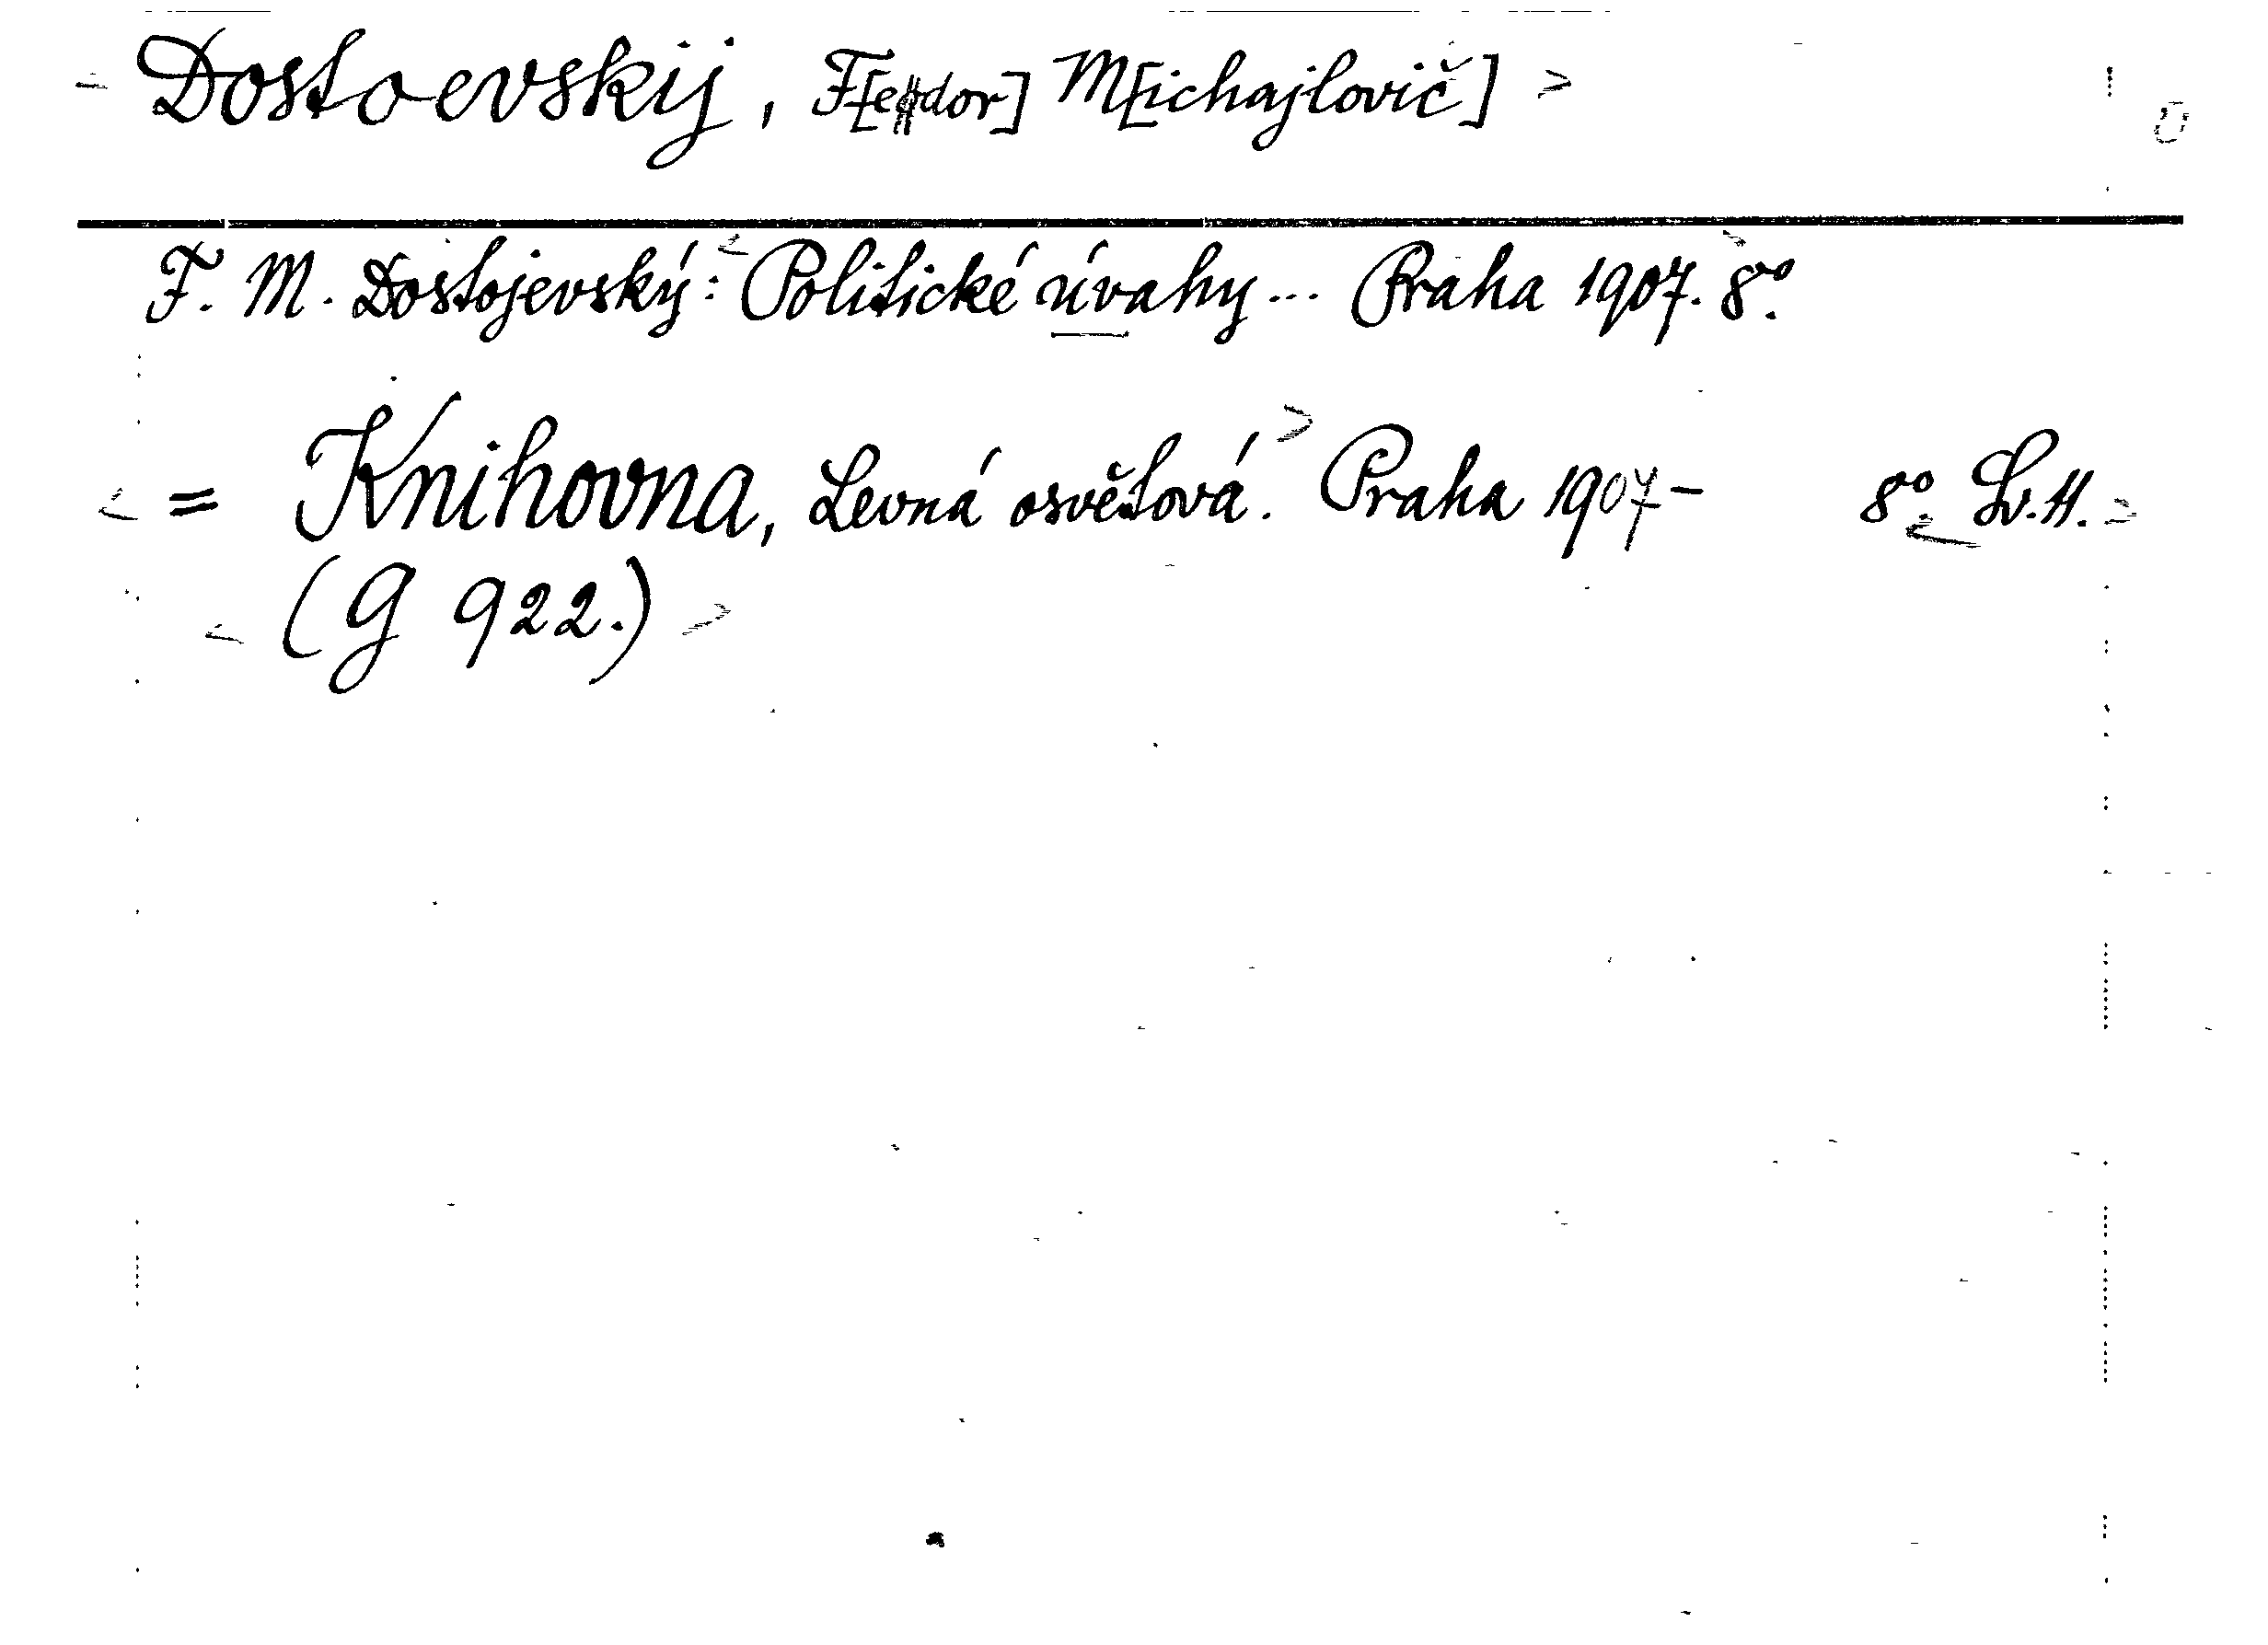 Dostoevskij, F[eodor] M[ichajlovič]
F. M. Dostojevský: Politické úvahy... Praha 1907. 8°.
= Knihovna, Levná osvětová. Praha 1907- 8°. Sv. 11.
(G 922.)